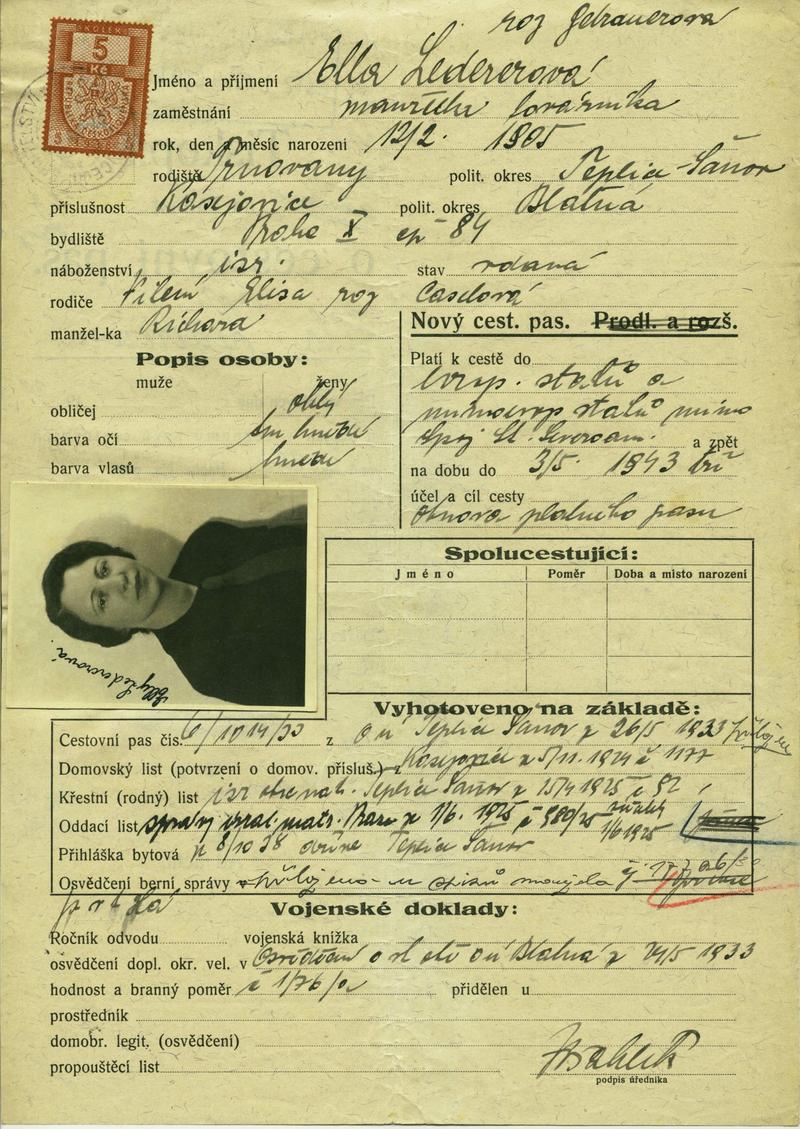 roz Gebrauerova
KOLEK
5
Kč
Jméno a příjmení Ella Ledererová
zaměstnání manželka továrníka
rok, den a měsíc narození 12/2. 1905
rodiště Trnovany polit. okres Teplice-Šanov
příslušnost Kasejovice polit. okres Blatná
bydliště Praha X čp 84
náboženství isr. stav vdaná
rodiče Vilém Elisa roz Caselová
manžel-ka Richard
Nový cest. pas. Prodl. a rozš.
Popis osoby:
muže ženy
obličej oblý
barva očí tm hnědé
barva vlasů hnědé
Platí k cestě do
evrop. států a
mimoevrop států mimo
Spoj St. Severoam. a zpět
na dobu do 3/5. 1943
účel a cíl cesty
obnova platného pasu
Elly Ledererová.
Spolucestující:
Jméno Poměr Doba a místo narození
Vyhotoveno na základě:
Cestovní pas čís. 6/1014/33 z O ú Teplice Šanov z 26/5 1933
Domovský list (potvrzení o domov. přísluš.) z Kasejovice z 5/11. 1924 č 1177
Křestní (rodný) list isr Teplice Šanov z 15/4 1925 č 92
Oddací list správy izrael. matr. z 1/6. 1925 č 980/25 1/6 1925
Přihláška bytová z 8/10 38 Teplice Šanov
Osvědčení berní správy přiloženo u spisů manžela
Vojenské doklady:
Ročník odvodu vojenská knížka
osvědčení dopl. okr. vel. v Osvědčení o st obč O ú Blatná z 24/5 1933
hodnost a branný poměr přidělen u
prostředník
domobr. legit. (osvědčení)
propouštěcí list
podpis úředníka